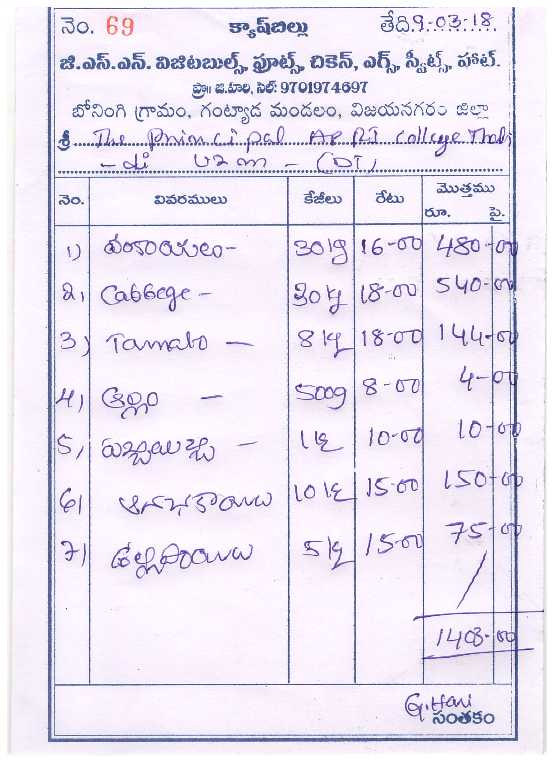 నెం. 69 క్యాష్‌బిల్లు తేది.9-03-18
జి.ఎస్.ఎన్. విజిటబుల్స్, ఫ్రూట్స్, చికెన్, ఎగ్స్, స్వీట్స్, హాట్.
ప్రొ॥ జి.హరి, సెల్: 9701974697
బోనింగి గ్రామం, గంట్యాడ మండలం, విజయనగరం జిల్లా
శ్రీ The Principal college
నెం. వివరములు కేజీలు రేటు మొత్తము
రూ. పై.
1) వంకాయలు- 30 kg 16-00 480-00
2, Cabbege - 30 kg 18-00 540-00
3) Tamato - 8 kg 18-00 144-00
4) అల్లం - 500g 8-00 4-00
5, - 1 kg 10-00 10-00
6) ఆనపకాయలు 10 kg 15-00 150-00
7) ఉల్లిపాయలు 5 kg 15-00 75-00
1403-00
G.Hari
సంతకం